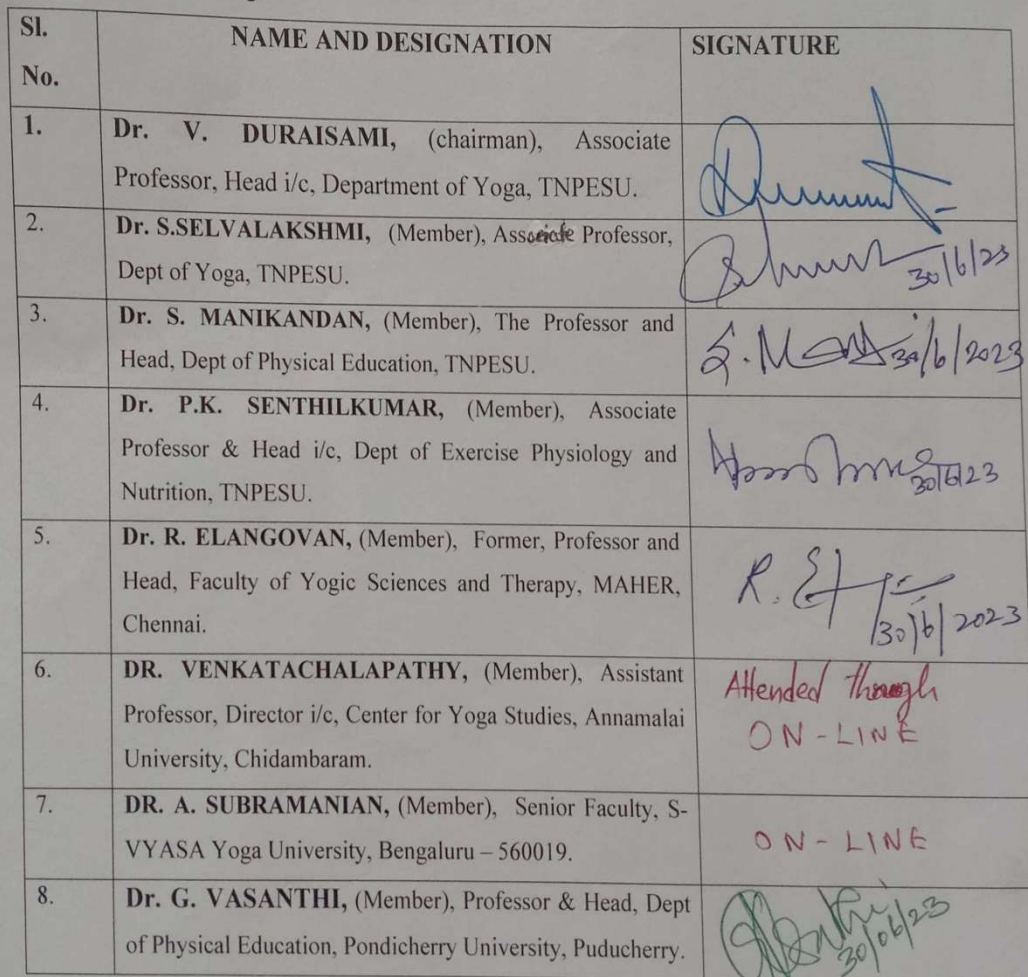 Sl.
No.
NAME AND DESIGNATION
SIGNATURE
1.
Dr. V. DURAISAMI, (chairman), Associate
Professor, Head i/c, Department of Yoga, TNPESU.
2.
Dr. S.SELVALAKSHMI, (Member), Associate Professor,
Dept of Yoga, TNPESU.
30/6/23
3.
Dr. S. MANIKANDAN, (Member), The Professor and
Head, Dept of Physical Education, TNPESU.
30/6/2023
4.
Dr. P.K. SENTHILKUMAR, (Member), Associate
Professor & Head i/c, Dept of Exercise Physiology and
Nutrition, TNPESU.
30/6/23
5.
Dr. R. ELANGOVAN, (Member), Former, Professor and
Head, Faculty of Yogic Sciences and Therapy, MAHER,
Chennai.
30/6/2023
6.
DR. VENKATACHALAPATHY, (Member), Assistant
Professor, Director i/c, Center for Yoga Studies, Annamalai
University, Chidambaram.
Attended through
ON-LINE
7.
DR. A. SUBRAMANIAN, (Member), Senior Faculty, S-
VYASA Yoga University, Bengaluru – 560019.
ON-LINE
8.
Dr. G. VASANTHI, (Member), Professor & Head, Dept
of Physical Education, Pondicherry University, Puducherry.
30/06/23